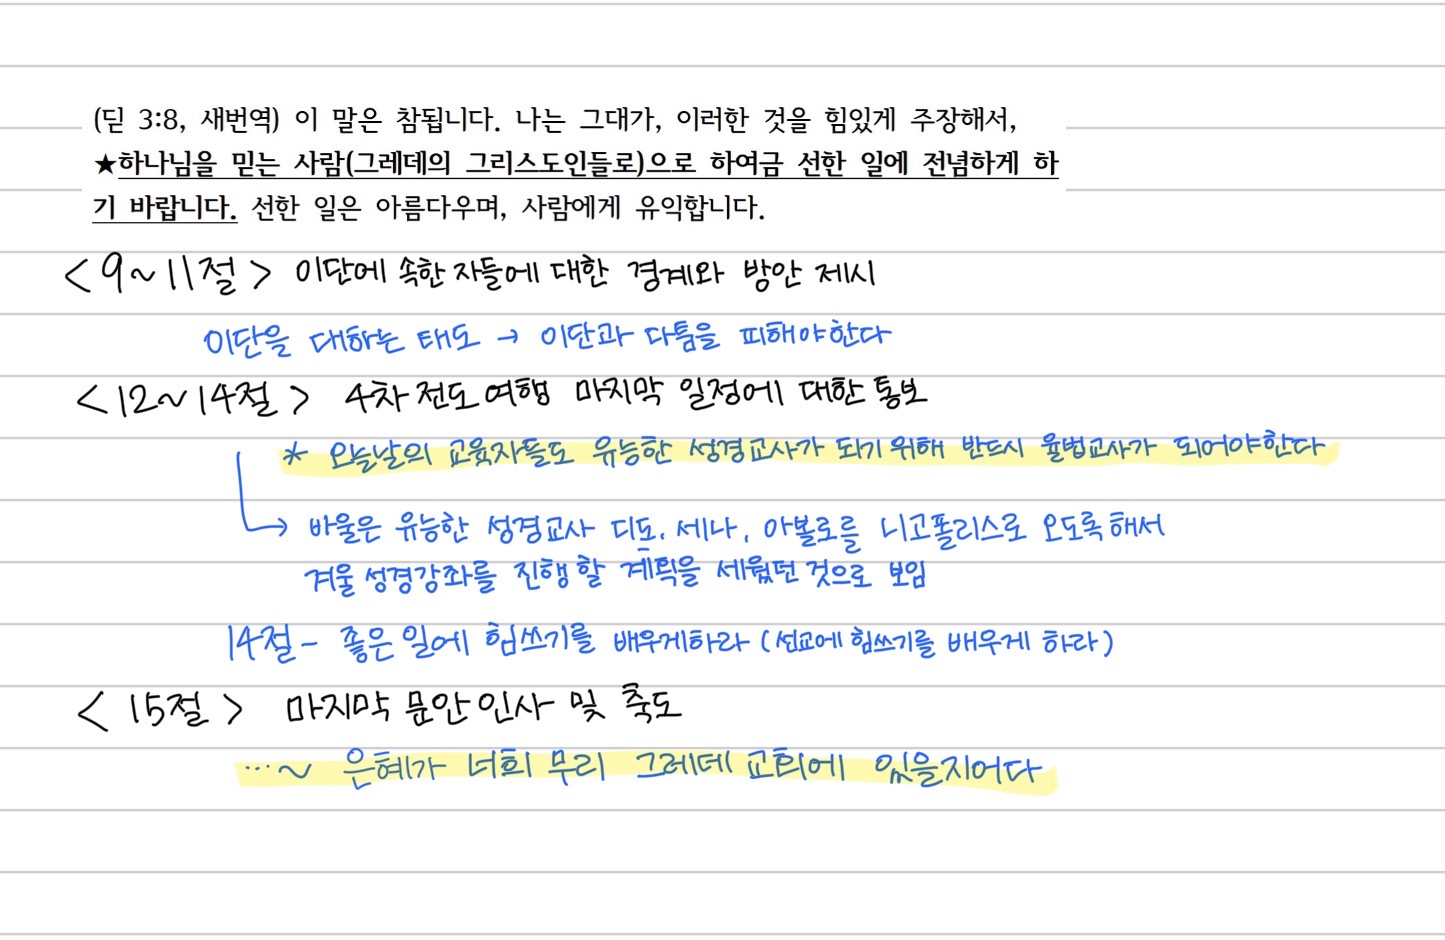 (딛 3:8, 새번역) 이 말은 참됩니다. 나는 그대가, 이러한 것을 힘있게 주장해서,
★하나님을 믿는 사람(그레데의 그리스도인들로)으로 하여금 선한 일에 전념하게 하
기 바랍니다. 선한 일은 아름다우며, 사람에게 유익합니다.
<9~11절> 이단에 속한 자들에 대한 경계와 방안 제시
이단을 대하는 태도 → 이단과 다툼을 피해야한다
<12~14절> 4차 전도여행 마지막 일정에 대한 통보
* 오늘날의 교육자들도 유능한 성경교사가 되기 위해 반드시 율법교사가 되어야한다
→ 바울은 유능한 성경교사 디도, 세나, 아볼로를 니고폴리스로 오도록해서
겨울 성경강좌를 진행할 계획을 세웠던 것으로 보임
14절 - 좋은 일에 힘쓰기를 배우게하라 (선교에 힘쓰기를 배우게 하라)
<15절> 마지막 문안인사 및 축도
…~ 은혜가 너희 무리 그레데 교회에 있을지어다